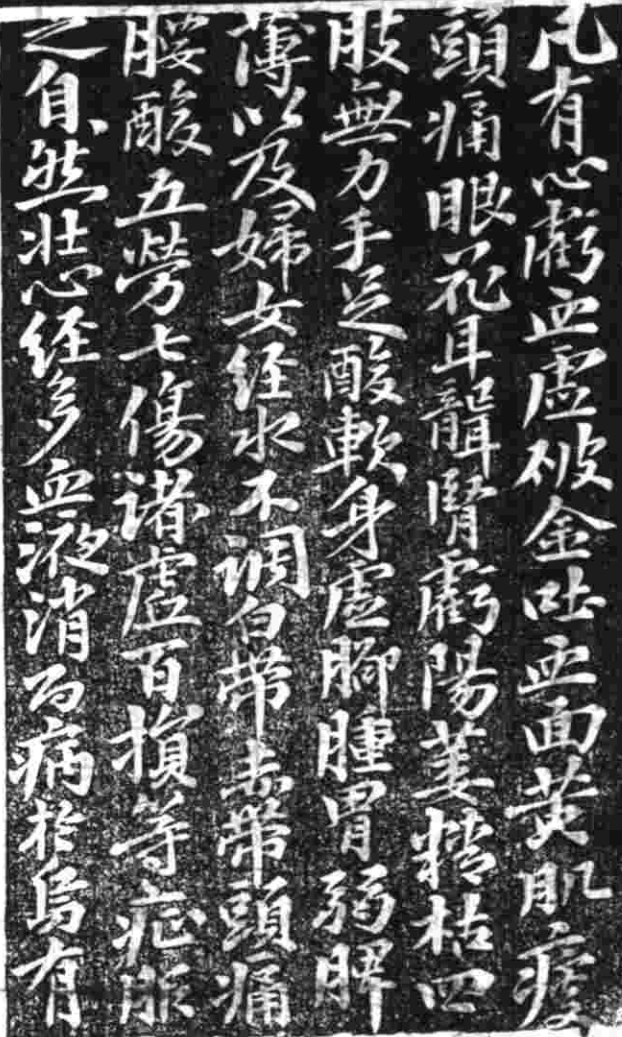 凡有心虧血虛破金吐血面黄肌瘦
頭痛眼花耳聾腎虧陽萎精枯四
肢無力手足酸軟身虛腳腫胃弱脾
薄以及婦女经水不调白帶赤帶頭痛
腰酸五勞七傷諸虛百損等症服
之自然壮心经多血液消百病於烏有